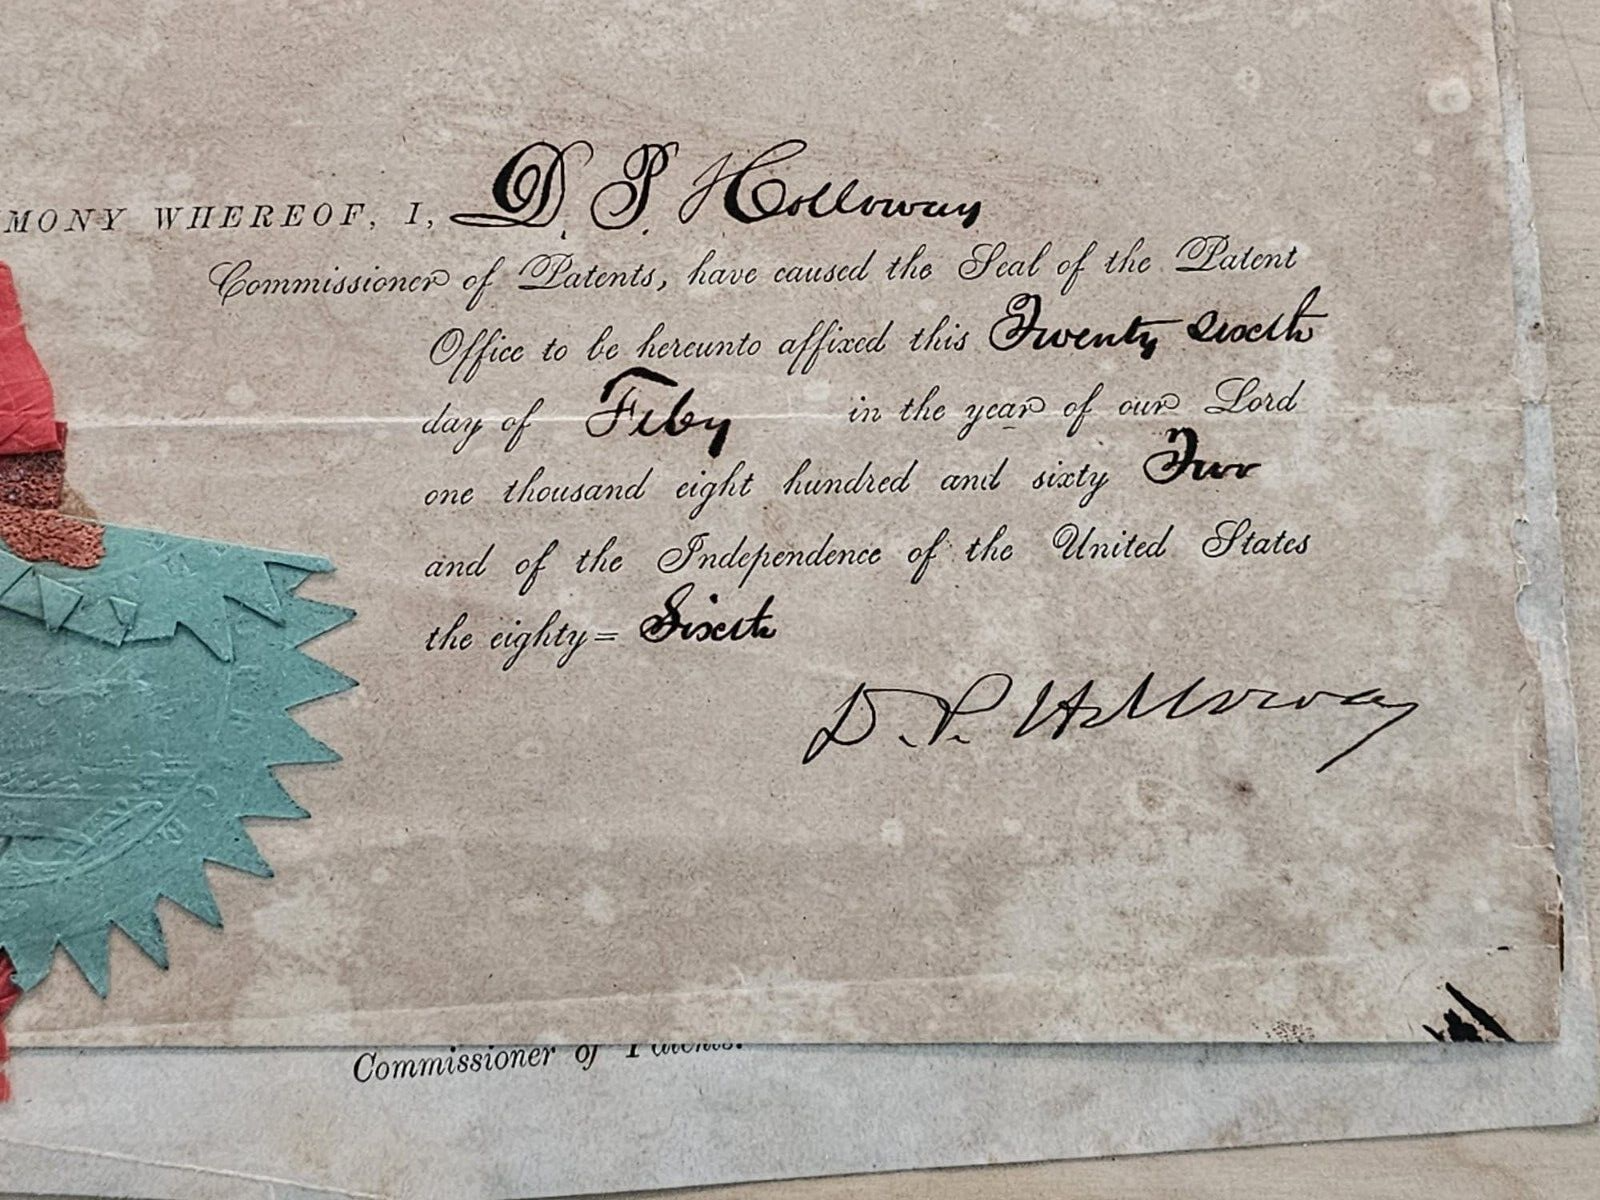 MONY WHEREOF, I, D. P. Holloway
Commissioner of Patents, have caused the Seal of the Patent
Office to be hereunto affixed this Twenty sixth
day of Feby in the year of our Lord
one thousand eight hundred and sixty Two
and of the Independence of the United States
the eighty= Sixth
D. P. Holloway
Commissioner of Patents.